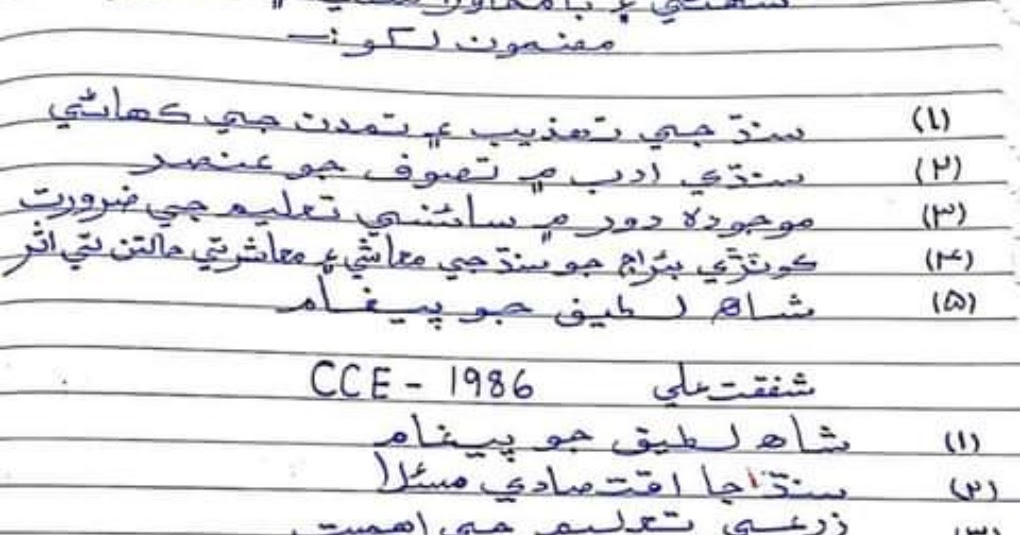 سهڻي ۽ بامحاوره
مضمون لکو :—
(۱) سنڌ جي تهذيب ۽ تمدن جي ڪهاڻي
(۲) سنڌي ادب ۾ تصوف جو عنصر
(۳) موجوده دور ۾ سائنسي تعليم جي ضرورت
(۴) ڪوٽڙي بئراج جو سنڌ جي معاشي ۽ معاشرتي حالتن تي اثر
(۵) شاھ لطيف جو پيغام
شفقت علي CCE - 1986
(۱) شاھ لطيف جو پيغام
(۲) سنڌ جا اقتصادي مسئلا
(۳) زرعي تعليم جي اهميت